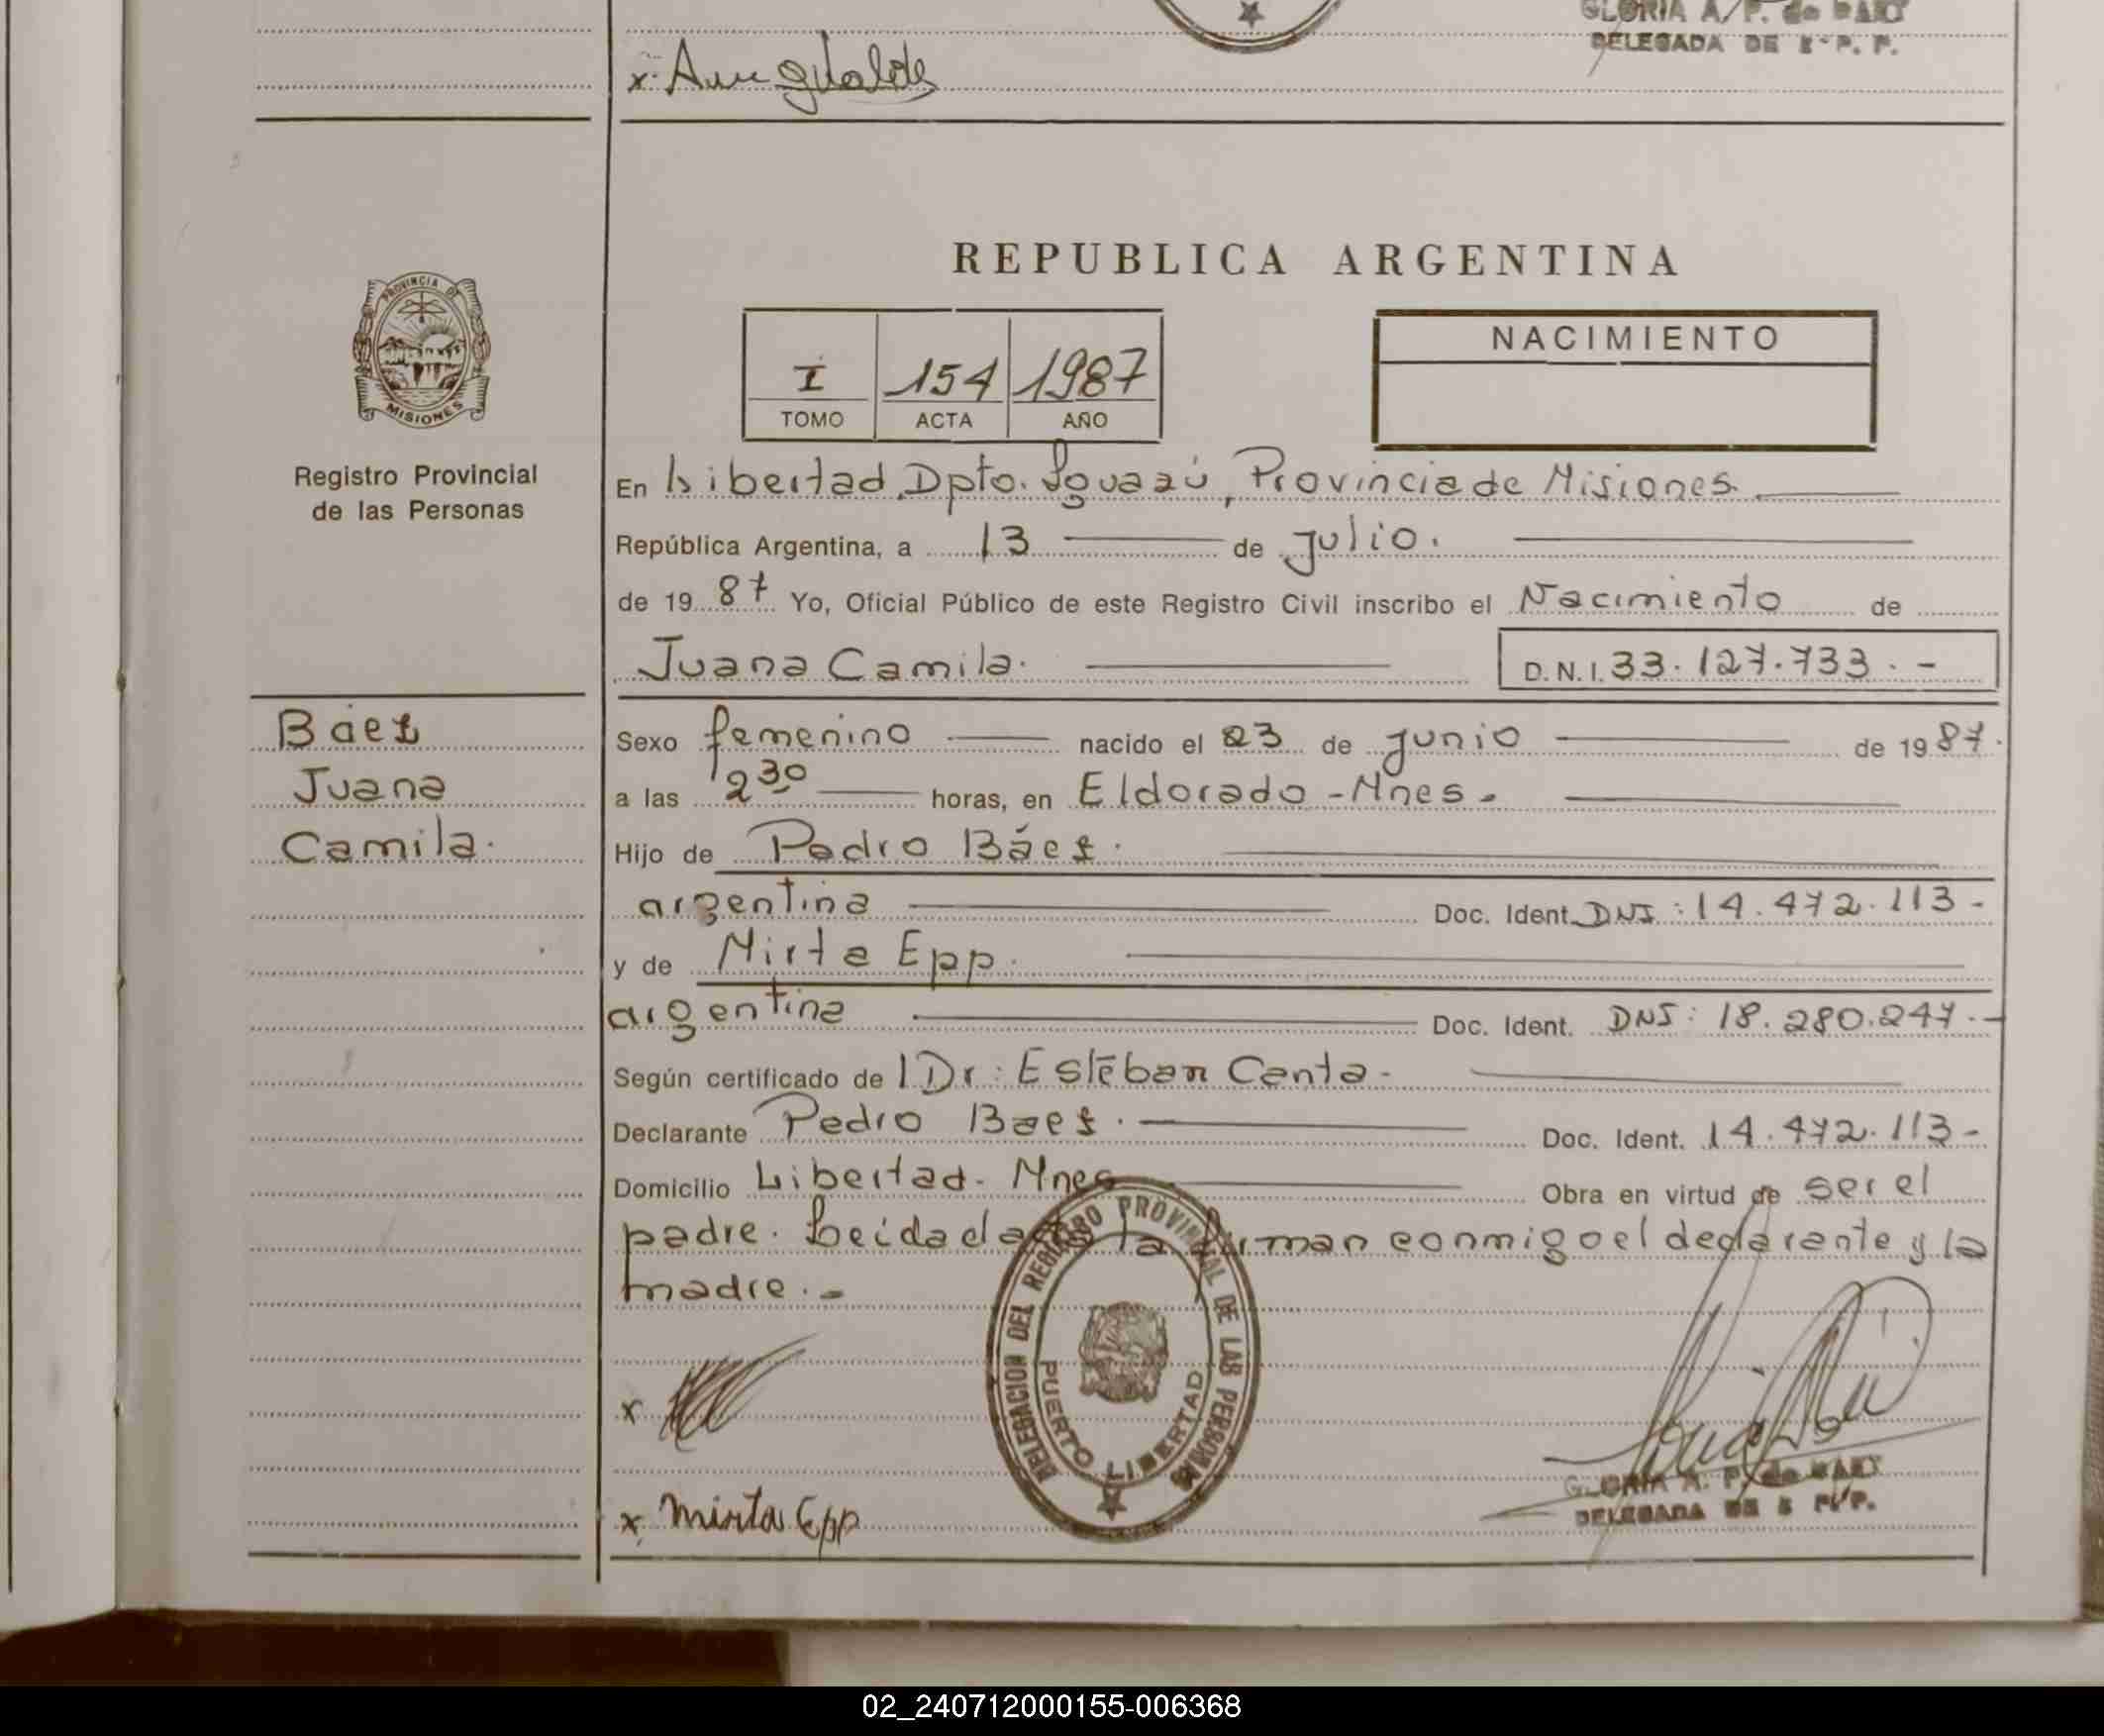 GLORIA A. P. de
DELEGADA DE E. P. P.
x.
REPUBLICA ARGENTINA
PROVINCIA DE
MISIONES
Registro Provincial
de las Personas
I 154 1987
TOMO ACTA AÑO
NACIMIENTO
En Libertad, Dpto. Iguazú, Provincia de Misiones.
República Argentina, a 13 de Julio.
de 1987 Yo, Oficial Público de este Registro Civil inscribo el Nacimiento de
Juana Camila. D.N.I. 33.127.733.-
Báez
Juana
Camila.
Sexo femenino nacido el 23 de junio de 1987.
a las 2 30 horas, en Eldorado - Mnes.
Hijo de Pedro Báez.
argentina Doc. Ident. DNI: 14.472.113-
y de Mirta Epp.
argentina Doc. Ident. DNI: 18.280.247.-
Según certificado de Dr: Estēban Canta-
Declarante Pedro Baez. Doc. Ident. 14.472.113-
Domicilio Libertad- Mnes Obra en virtud de ser el
padre. Leida el acta firman conmigo el declarante y la
madre.-
DELEGACION DEL REGISTRO PROVINCIAL DE LAS PERSONAS
PUERTO LIBERTAD
x
GLORIA A. P. de
DELEGADA DE E P. P.
x. Mirta Epp
02_240712000155-006368